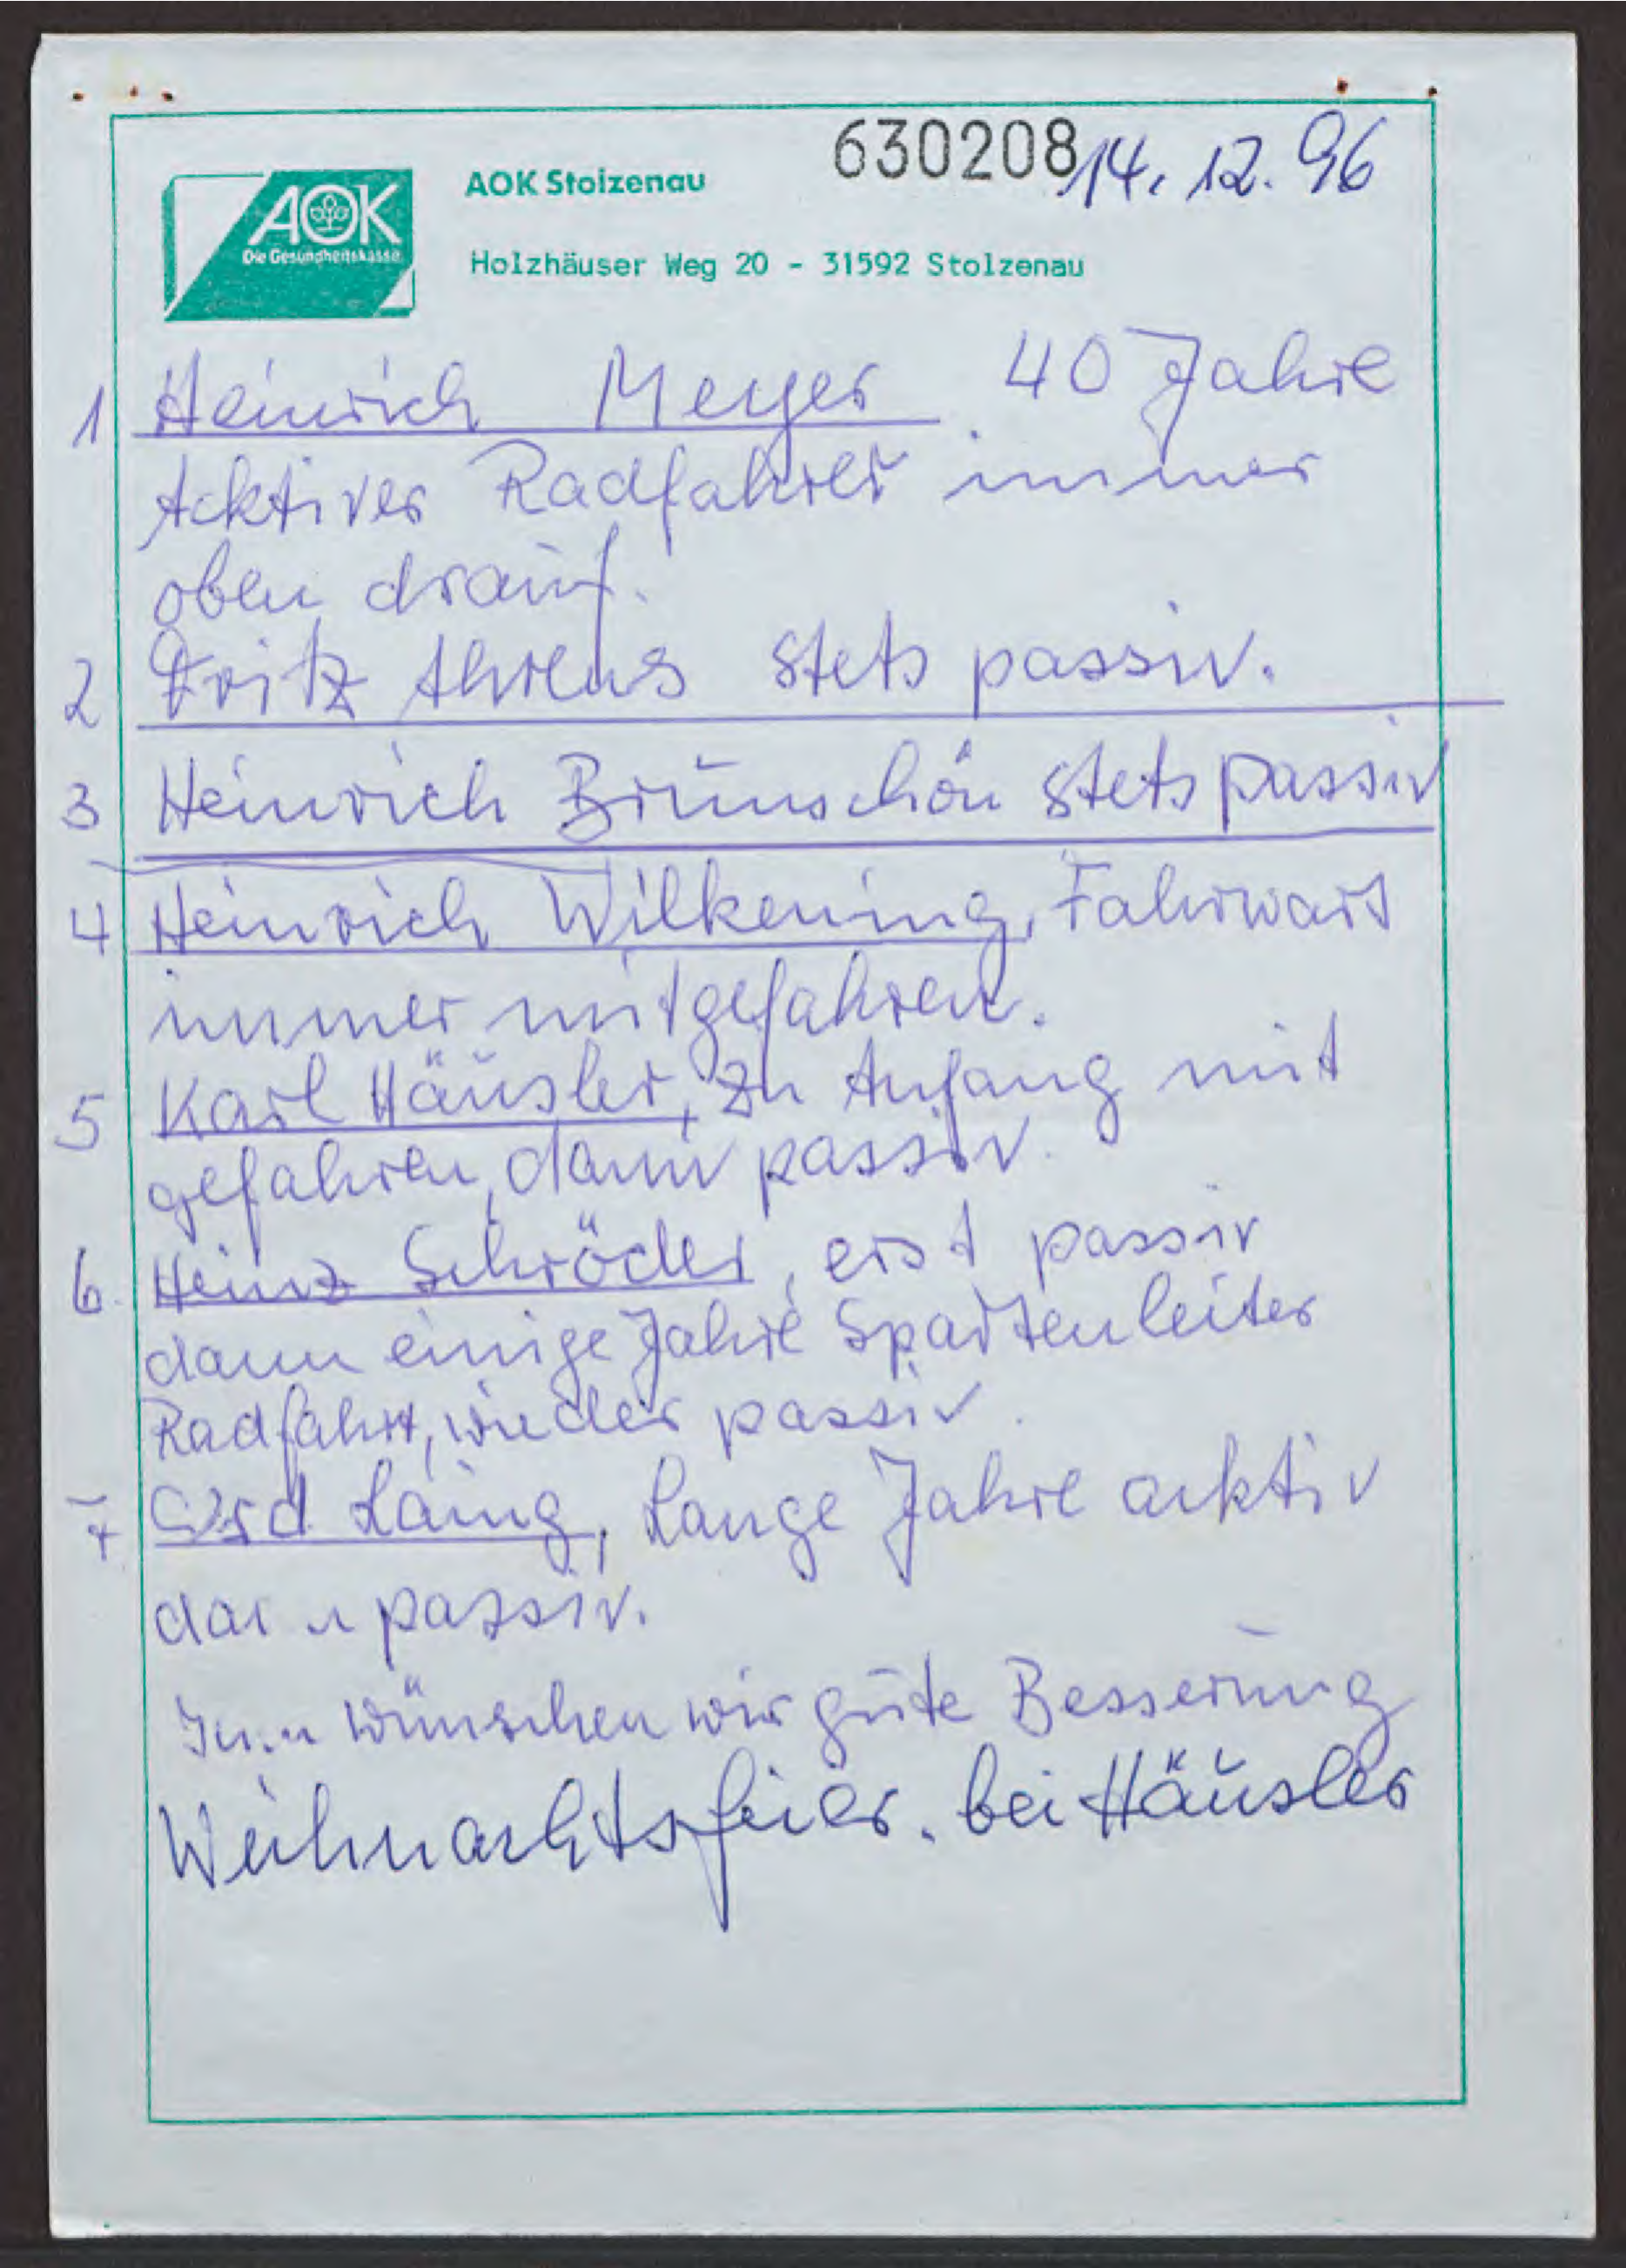 630208 14. 12. 96
AOK
Die Gesundheitskasse
AOK Stolzenau
Holzhäuser Weg 20 - 31592 Stolzenau
1 Heinrich Meyer 40 Jahre
Acktiver Radfahrer immer
oben drauf.
2 Fritz Ahrens stets passiv.
3 Heinrich Brünschön stets passiv
4 Heinrich Wilkening, Fahrwart
immer mitgefahren.
5 Karl Häusler, zu Anfang mit
gefahren, dann passiv.
6. Heinz Schröder, erst passiv
dann einige Jahre Spartenleiter
Radfahrt, wieder passiv.
7 Gerd Laing, Lange Jahre acktiv
dann passiv.
wünschen wir gute Besserung
Weihnachtsfeier. bei Häusler